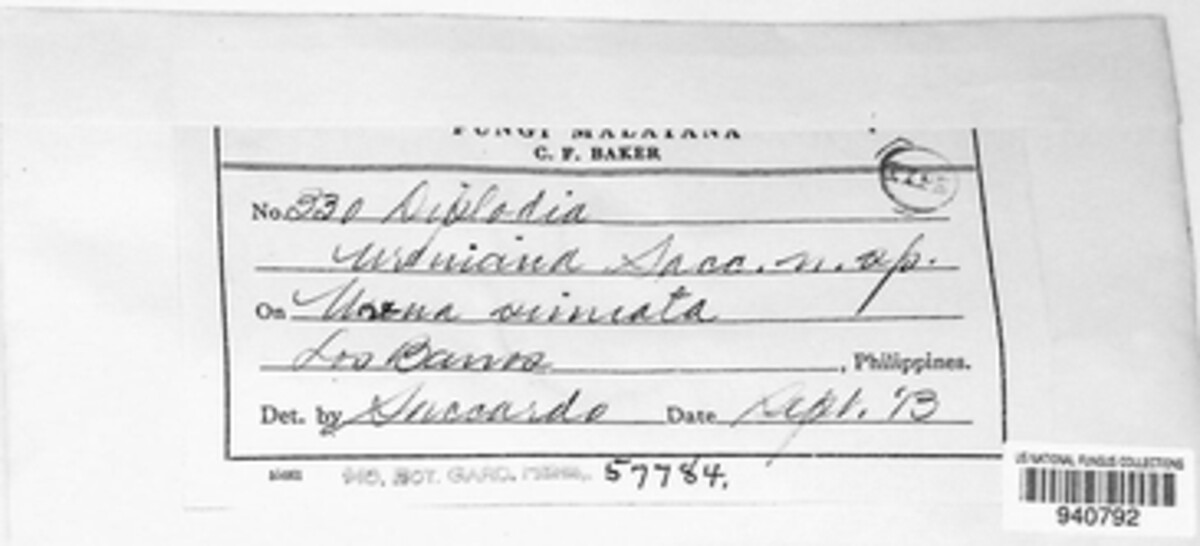 FUNGI MALAYANA
C. F. BAKER
No. 330 Diplodia
Ureniana Sacc. n. sp.
On Urena sinuata
Los Banos, Philippines.
Det. by Saccardo Date Sept. '13
MO. BOT. GARD. HERB. 57784.
US NATIONAL FUNGUS COLLECTIONS
940792